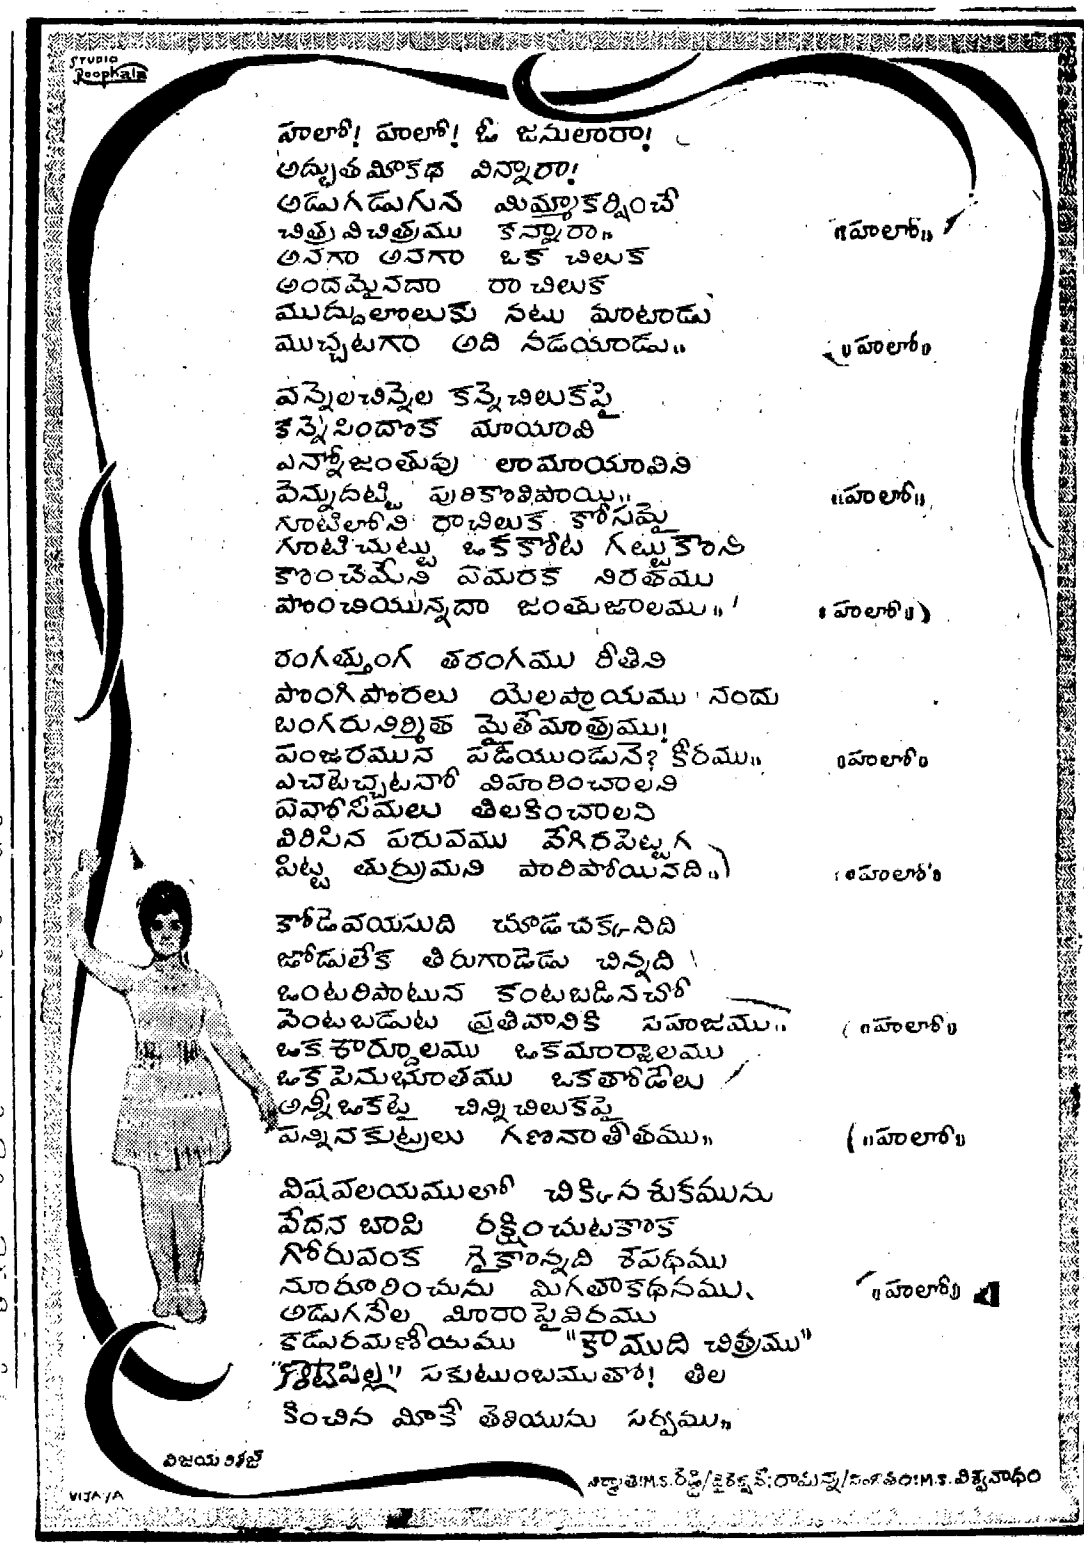 STUDIO
Roopkala
హలో! హలో! ఓ జనులారా!
అద్భుత మీకథ విన్నారా!
అడుగడుగున మిమ్మాకర్షించే
చిత్రవిచిత్రము కన్నారా॥ ॥హలో॥
అనగా అనగా ఒక చిలుక
అందమైనదా రాచిలుక
ముద్దులొలుకు నటు మాటాడు
ముచ్చటగా అది నడయాడు॥ ॥హలో॥
వన్నెలచిన్నెల కన్నెచిలుకపై
కన్నేసిందొక మాయావి
ఎన్నోజంతువు లామాయావిని
వెన్నుదట్టి పురికొలిపాయి॥ ॥హలో॥
గూటిలోని రాచిలుక కోసమై
గూటిచుట్టు ఒకకోట గట్టుకొని
కొంచెమేని ఏమరక నిరతము
పొంచియున్నదా జంతుజాలము॥ ॥హలో॥
రంగత్తుంగ తరంగము రీతిని
పొంగిపొరలు యెలప్రాయము నందు
బంగరునిర్మిత మైతేమాత్రము!
పంజరమున పడియుండునె? కీరము॥ ॥హలో॥
ఎచటెచ్చటనో విహరించాలని
ఏవోసీమలు తిలకించాలని
విరిసిన పరువము వేగిరపెట్టగ
పిట్ట తుర్రుమని పారిపోయినది॥ ॥హలో॥
కోడెవయసుది చూడచక్కనిది
జోడులేక తిరుగాడెడు చిన్నది
ఒంటరిపాటున కంటబడినచో
వెంటబడుట ప్రతివానికి సహజము॥ ॥హలో॥
ఒకశార్దూలము ఒకమార్జాలము
ఒకపెనుభూతము ఒకతోడేలు
అన్నీఒకటై చిన్నిచిలుకపై
పన్నినకుట్రలు గణనాతీతము॥ ॥హలో॥
విషవలయములో చిక్కిన శుకమును
వేదన బాపి రక్షించుటకొక
గోరువంక గైకొన్నది శపథము
నూరూరించును మిగతాకథనము. ॥హలో॥
అడుగనేల మీరాపైవిరము
కడురమణీయము "కౌముది చిత్రము"
"కొంటెపిల్ల" సకుటుంబముతో! తిల
కించిన మీకే తెలియును సర్వము॥
విజయ రిలీజ్
నిర్మాత:M.S.రెడ్డి/డైరెక్షన్:రామన్న/సంగీతం:M.S.విశ్వనాథం
VIJAYA